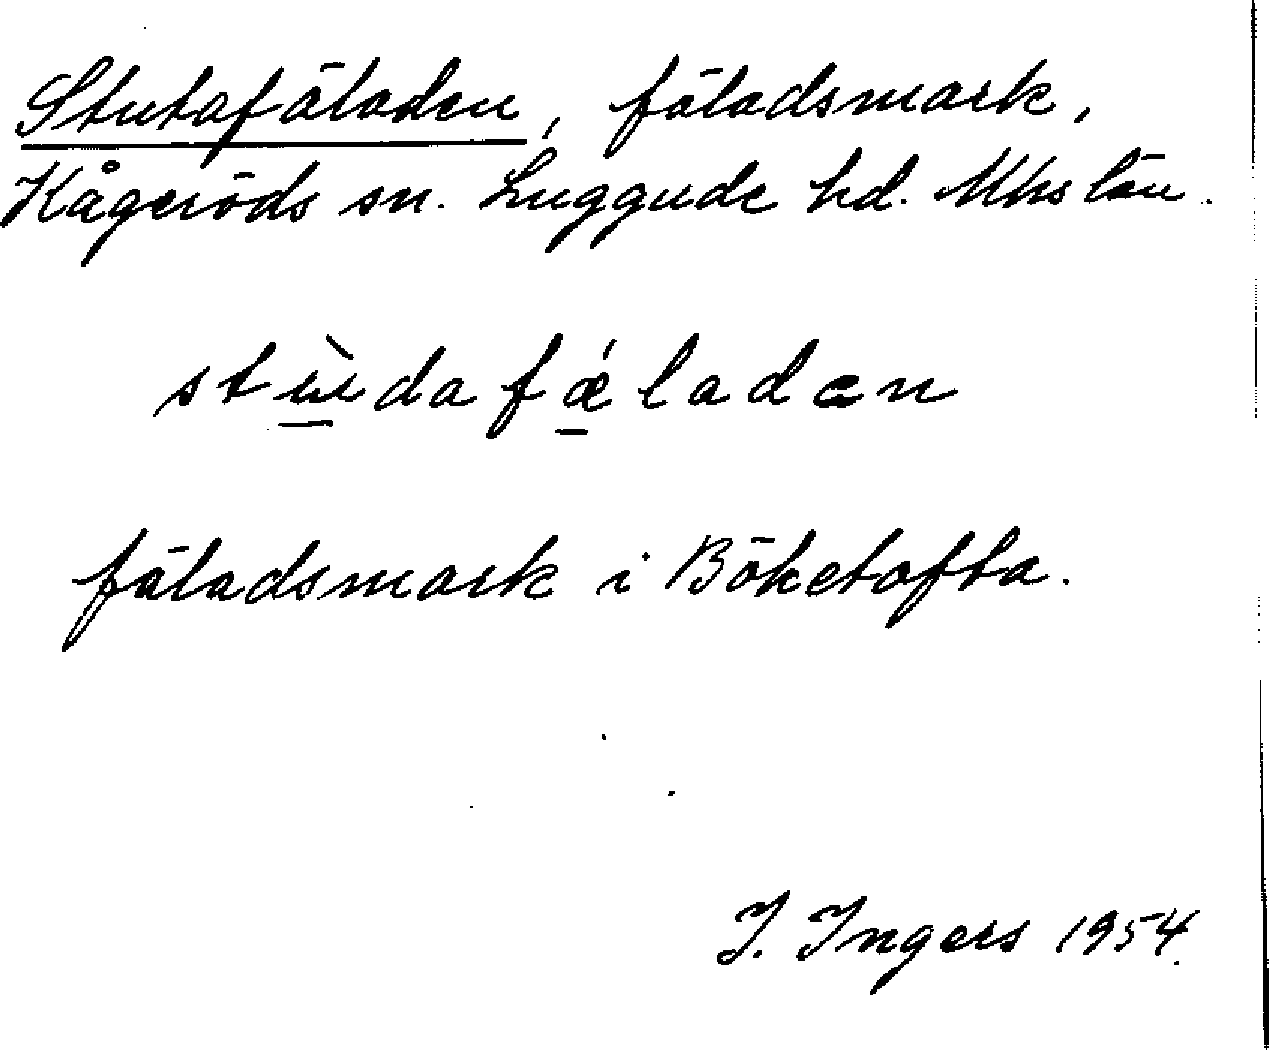 Stutafäladen, fäladsmark,
Kågeröds sn. Luggude hd. Mhs län.
stɯ̀dafǽladen
fäladsmark i Böketofta.
I. Ingers 1954.